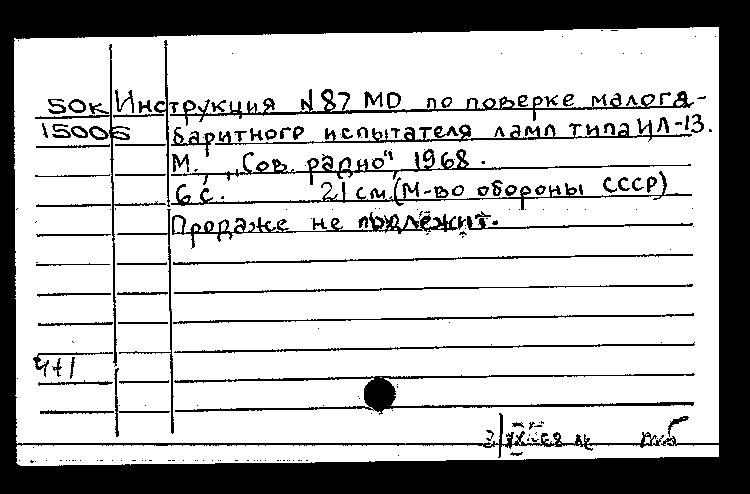 50к Инструкция N87 МО по поверке малога-
15006 баритного испытателя ламп типа ИЛ-13.
М., "Сов. радио", 1968.
6 с. 21 см. (М-во обороны СССР)
Продаже не подлежит.
4+1